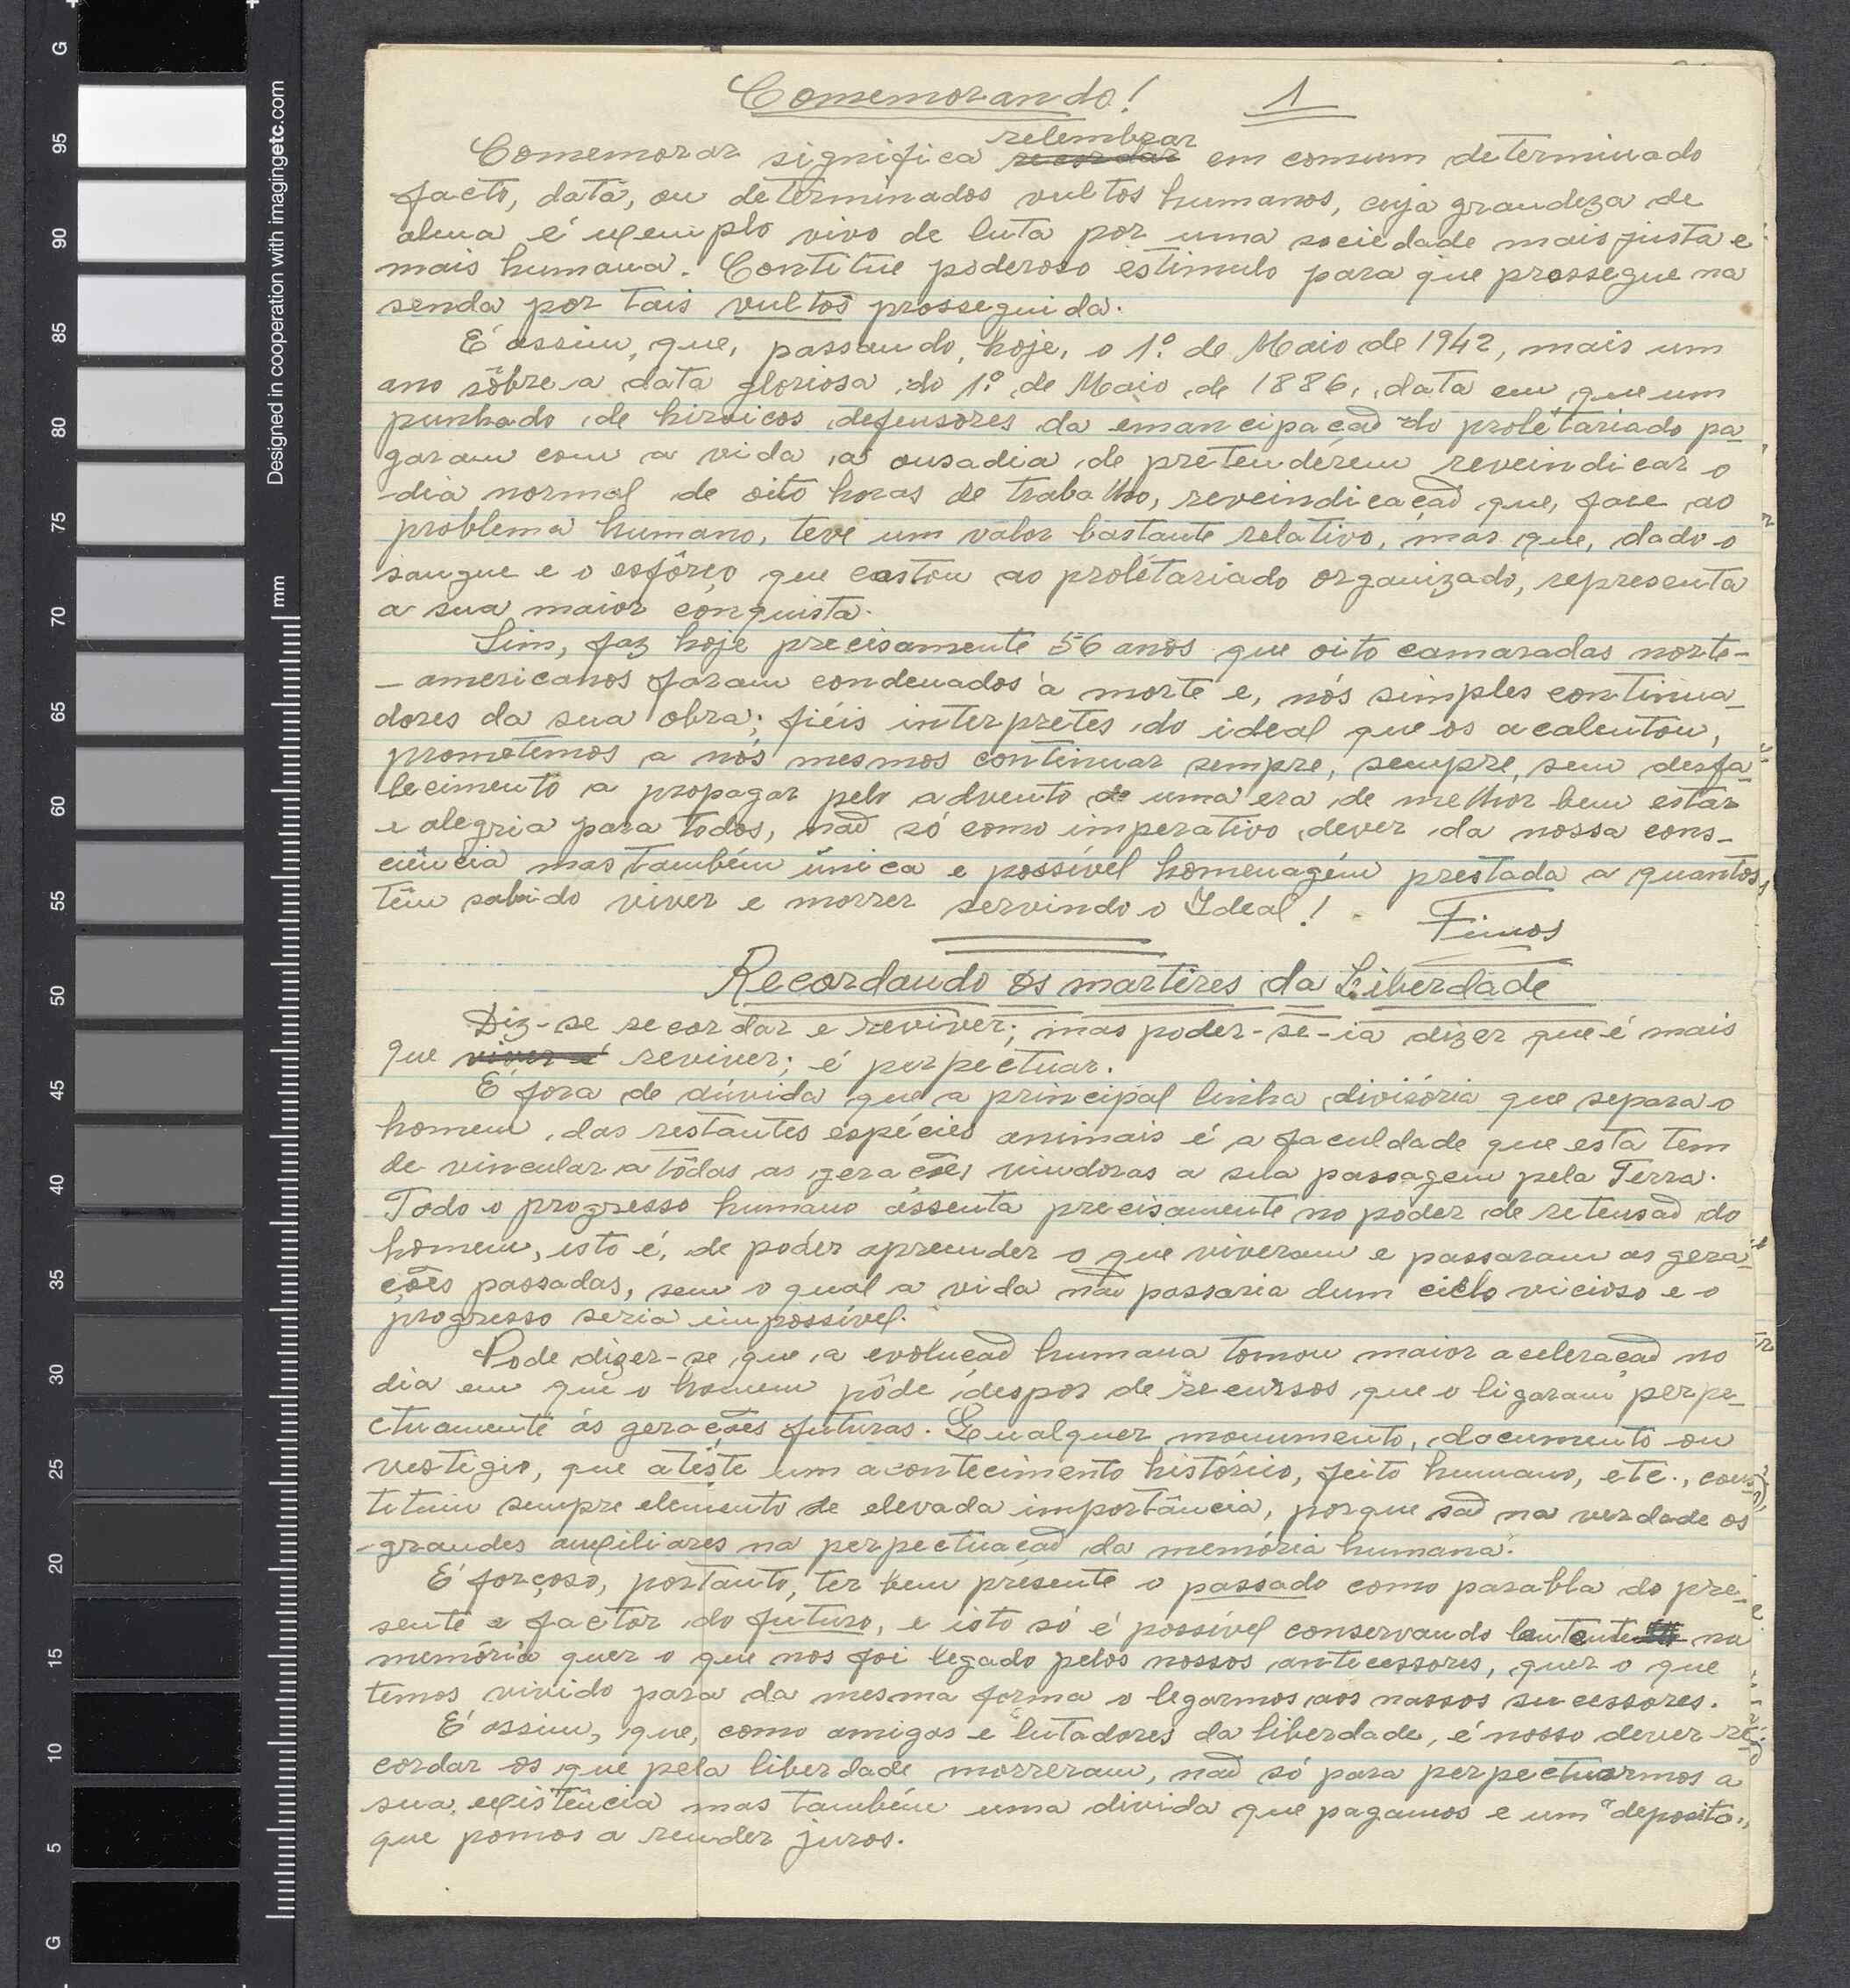 Comemorando! 1
relembrar
Comemorar significa recordar em comum determinado
facto, data, ou determinados vultos humanos, cuja grandeza de
alma é exemplo vivo de luta por uma sociedade mais justa e
mais humana. Contitue poderoso estimulo para que prossegue na
senda por tais vultos prosseguida.
É assim, que, passando, hoje, o 1º de Maio de 1942, mais um
ano sôbre a data gloriosa do 1º de Maio de 1886, data em que um
punhado de hiroicos defensores da emancipação do proletariado pa-
garam com a vida a ousadia de pretenderem reveindicar o
dia normal de oito horas de trabalho, reveindicação que, face ao
problema humano, teve um valor bastante relativo, mas que, dado o
sangue e o esfôrço que custou ao proletariado organizado, representa
a sua maior conquista.
Sim, faz hoje precisamente 56 anos que oito camaradas norte-
-americanos foram condenados à morte e, nós simples continua-
dores da sua obra; fiéis interpretes do ideal que os acalentou,
prometemos a nós mesmos continuar sempre, sempre, sem desfa-
lecimento a propagar pelo advento de uma era de melhor bem estar
e alegria para todos, não só como imperativo dever da nossa cons-
ciência mas também única e possível homenagém prestada a quantos
têm sabido viver e morrer servindo o Ideal!
Recordando os martires da Liberdade
Diz-se recordar e reviver; mas poder-se-ia dizer que é mais
que viver é reviver; é perpectuar.
É fora de dúvida que a principal linha divisória que separa o
homem das restantes espécies animais é a faculdade que esta tem
de vincular a tôdas as gerações vindoras a sua passagem pela Terra.
Todo o progresso humano assenta precisamente no poder de retensão do
homem, isto é, de poder aprender o que viveram e passaram as gera-
ções passadas, sem o qual a vida não passaria dum ciclo vicioso e o
progresso seria impossível.
Pode dizer-se que a evolução humana tomou maior aceleração no
dia em que o homem pôde despor de recursos que o ligaram perpe-
ctuamente ás gerações futuras. Qualquer monumento, documento ou
vestigio, que ateste um acontecimento histórico, feito humano, etc., cons-
tituin sempre elemento de elevada importância, porque são na verdade os
grandes auxiliares na perpectuação da memória humana.
É forçoso, portanto, ter bem presente o passado como parabla do pre-
sente e factor do futuro, e isto só é possível conservando na
memória quer o que nos foi legado pelos nossos antecessores, quer o que
temos vivido para da mesma forma o legarmos aos nossos sucessores.
É assim, que, como amigos e lutadores da liberdade, é nosso dever re-
cordar os que pela liberdade morreram, não só para perpectuarmos a
sua existência mas também uma divida que pagamos e um "deposito"
que pomos a render juros.
G
95
90
85
80
75
70
65
60
55
50
45
40
35
30
25
20
15
10
5
G
mm
Designed in cooperation with imagingetc.com